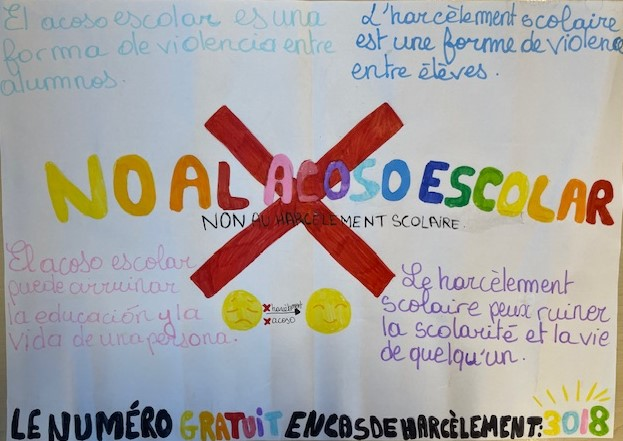 El acoso escolar es una
forma de violencia entre
alumnos.
L'harcèlement scolaire
est une forme de violence
entre élèves.
NO AL ACOSO ESCOLAR
NON AU HARCÈLEMENT SCOLAIRE.
El acoso escolar
puede arruinar
la educación y la
vida de una persona.
harcèlement
acoso
Le harcèlement
scolaire peux ruiner
la scolarité et la vie
de quelqu'un.
LE NUMÉRO GRATUIT EN CAS DE HARCÈLEMENT: 3018